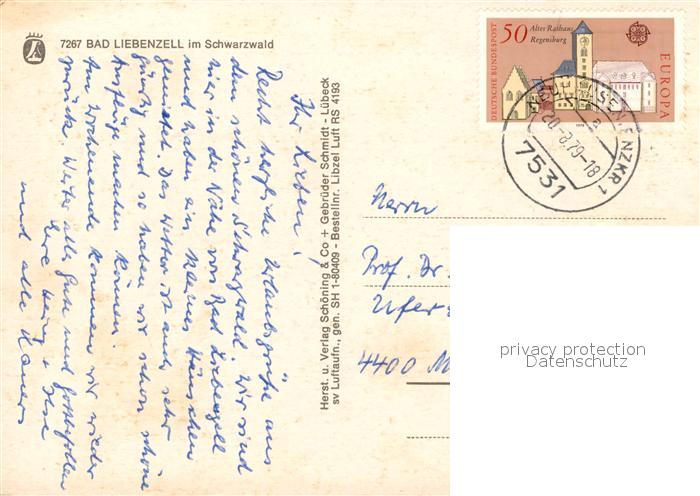 7267 BAD LIEBENZELL im Schwarzwald
Ihr Lieben!
Recht herzliche Urlaubsgrüße aus
dem schönen Schwarzwald. Wir sind
hier in der Nähe von Bad Liebenzell
und haben ein kleines Häuschen
gemietet. Das Wetter ist auch sehr
günstig und so haben wir schon schöne
Ausflüge machen können.
Am Wochenende kommen wir wieder
zurück. Weiter alles Gute und Gottbefohlen
Eure Heinz + Ilse
und alle
Herst. u. Verlag Schöning & Co + Gebrüder Schmidt - Lübeck
sv Luftaufn., gen. SH 1-80409 - Bestellnr. Libzel Luft RS 4193
DEUTSCHE BUNDESPOST
50
Altes Rathaus
Regensburg
EUROPA
1978
ENZKR 1
a
20.-8.79-18
7531
Herrn
Prof. Dr.
Ufer
4400 M
privacy protection
Datenschutz